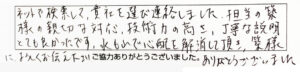 ネットで検索して、貴社を選び連絡しました。担当の〇〇
様の親切な対応、技術力の高さ、丁寧な説明
とても良かったです。水もれで心配を解消して頂き、皆様
に、よろしくお伝え下さい ご協力ありがとうございました。ありがとうございました